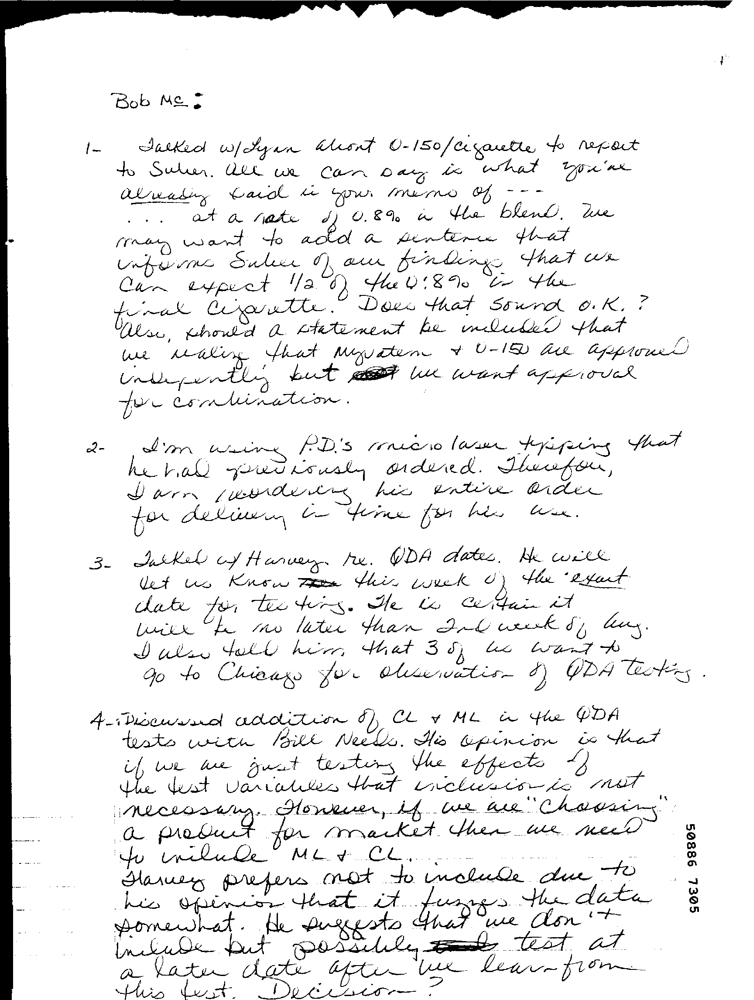 Bob Mc:
1- Talked w/Lynn about U-150/cigarette to report
to Suber. All we can say is what you've
already said in your memo of ---
... at a rate of 0.8% in the blend. We
may want to add a sentence that
informs Suber of our findings that we
can expect 1/2 of the 0.8% in the
final cigarette. Does that sound O.K.?
Also, should a statement be included that
we realize that & U-150 are approved
indepently but we want approval
for combination.
2- I'm using P.D.'s micro laser tipping that
he had previously ordered. Therefore,
I am reordering his entire order
for delivery in time for his use.
3- Talked w/ Harvey re. QDA dates. He will
let us know this week of the exact
date for testing. He is certain it
will be no later than 2nd week of Aug.
I also told him that 3 of us want to
go to Chicago for observation of QDA testing.
4- Discussed addition of CL & ML in the QDA
tests with Bill Neels. His opinion is that
if we are just testing the effects of
the test variables that inclusion is not
necessary. However, if we are "choosing"
a product for market then we need
to include ML & CL.
Harvey prefers not to include due to
his opinion that it fuzzes the data
somewhat. He suggests that we don't
include but possibly test at
a later date after we learn from
this test. Decision?
50886 7305